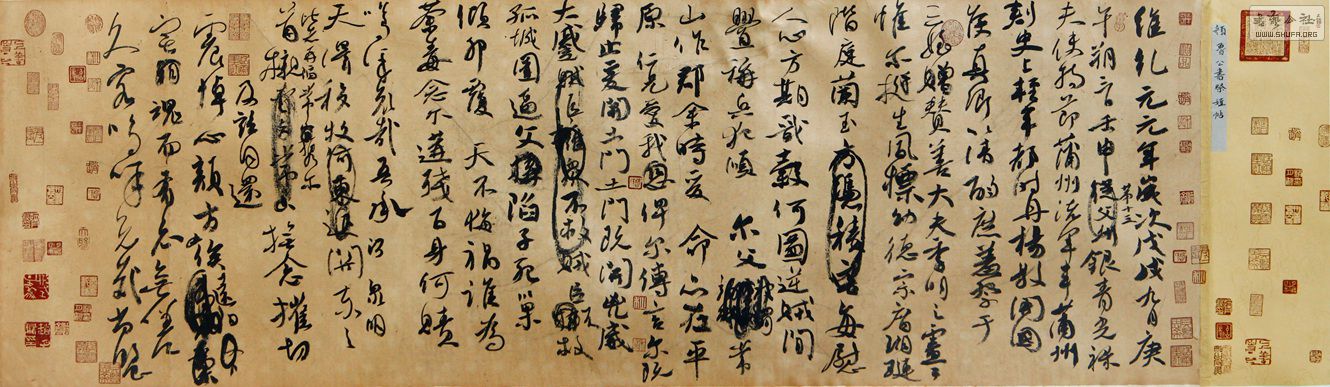 書法公社
WWW.SHUFA.ORG
顏魯公書祭姪帖
維乾元元年歲次戊戌九月庚
午朔三日壬申第十三從父叔銀青光祿
夫使持節蒲州諸軍事蒲州
刺史上輕車都尉丹楊縣開國
侯真卿以清酌庶羞祭于
亡姪贈贊善大夫季明之靈曰
惟爾挺生夙標幼德宗廟瑚璉
階庭蘭玉方憑積善每慰
人心方期戩穀何圖逆賊閒
釁稱兵犯順爾父竭誠常
山作郡余時受命亦在平
原仁兄愛我恐俾爾傳言爾既
歸止爰開土門土門既開凶威
大蹙賊臣擁眾不救賊臣不救
孤城圍逼父陷子死巢
傾卵覆天不悔禍誰為
荼毒念爾遘殘百身何贖
嗚乎哀哉吾承
天澤移牧河東近河關泉明
比者再陷常山攜爾
首櫬及茲同還
撫念摧切
震悼心顏方俟遠日
爾幽宅魂而有知無嗟
久客嗚呼哀哉尚饗